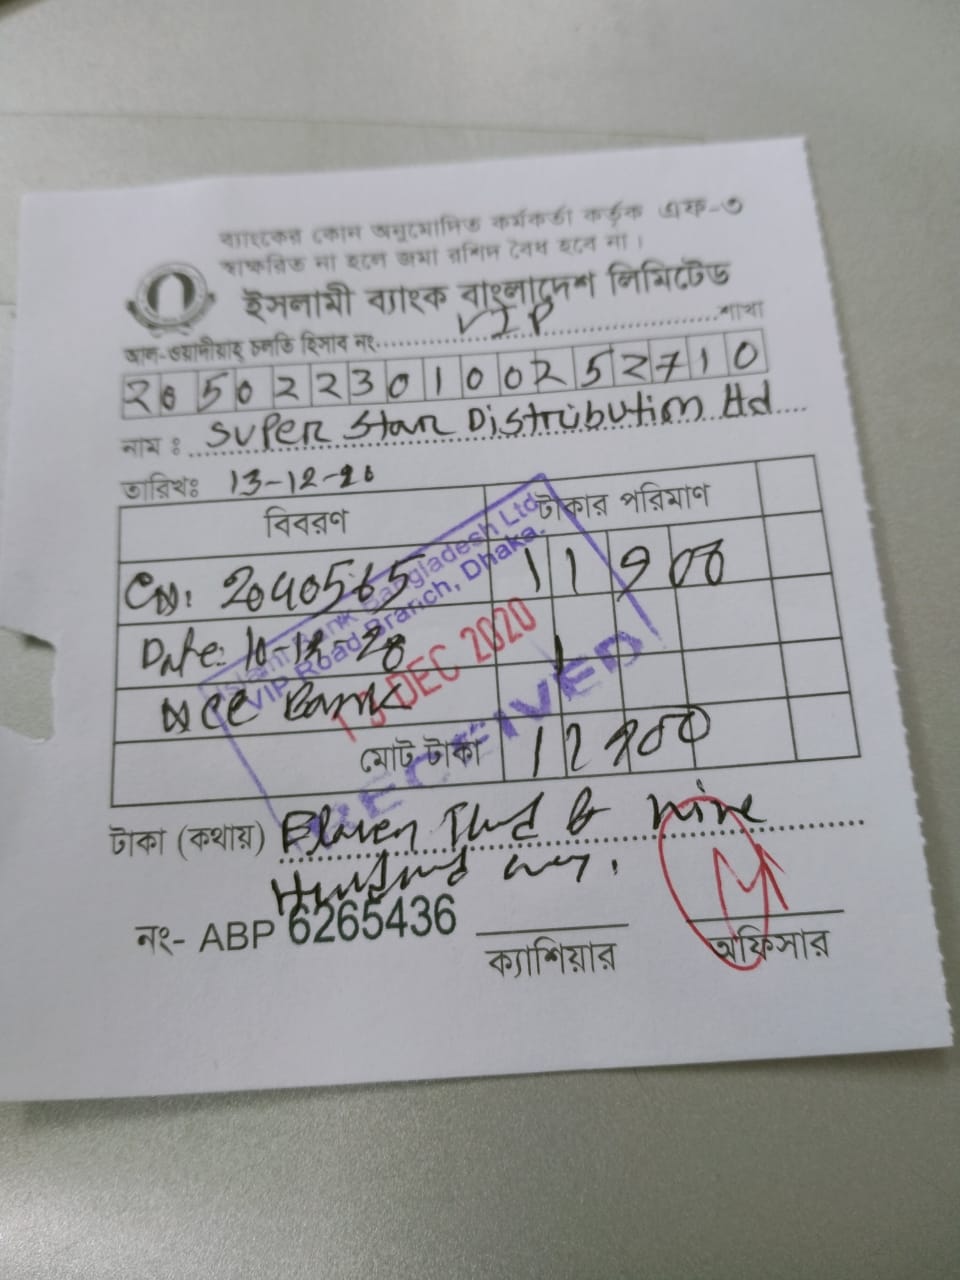 ব্যাংকের কোন অনুমোদিত কর্মকর্তা কর্তৃক এফ-৩
স্বাক্ষরিত না হলে জমা রশিদ বৈধ হবে না।
ইসলামী ব্যাংক বাংলাদেশ লিমিটেড
VIP শাখা
আল-ওয়াদীয়াহ্ চলতি হিসাব নং
20502230100252710
নাম : Super Star Distribution Ltd
তারিখঃ 13-12-20
বিবরণ টাকার পরিমাণ
2040565 11900
Date: 10-12-20
NCC Bank
মোট টাকা
Islami Bank Bangladesh Ltd.
VIP Road Branch, Dhaka.
13 DEC 2020
RECEIVED
টাকা (কথায়) Eleven Thud & Nine
Hundred
নং- ABP 6265436
ক্যাশিয়ার অফিসার